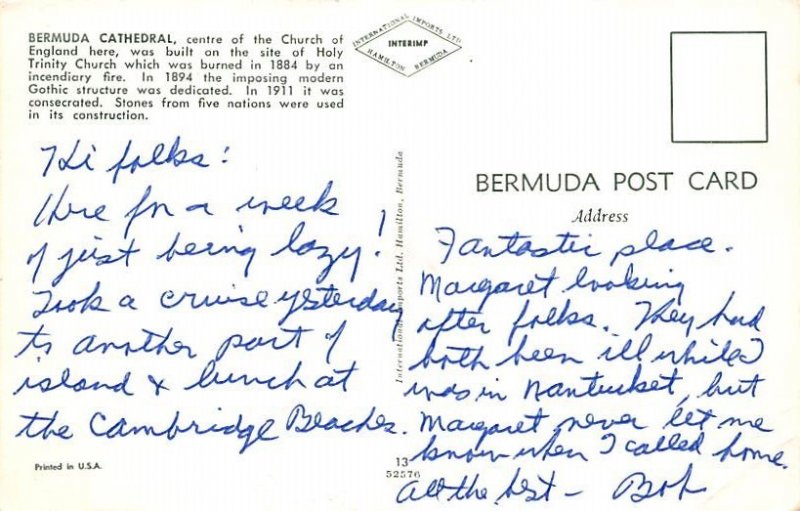 BERMUDA CATHEDRAL, centre of the Church of
England here, was built on the site of Holy
Trinity Church which was burned in 1884 by an
incendiary fire. In 1894 the imposing modern
Gothic structure was dedicated. In 1911 it was
consecrated. Stones from five nations were used
in its construction.
INTERNATIONAL IMPORTS LTD.
INTERIMP
HAMILTON BERMUDA
Hi folks:
Here for a week
of just being lazy!
Took a cruise yesterday
to another part of
island & lunch at
the Cambridge Beaches.
Printed in U.S.A.
International Imports Ltd. Hamilton, Bermuda
13
52576
BERMUDA POST CARD
Address
Fantastic place.
Margaret looking
after folks. They had
both been ill while I
was in Nantucket, but
Margaret never let me
know when I called home.
All the best – Bob